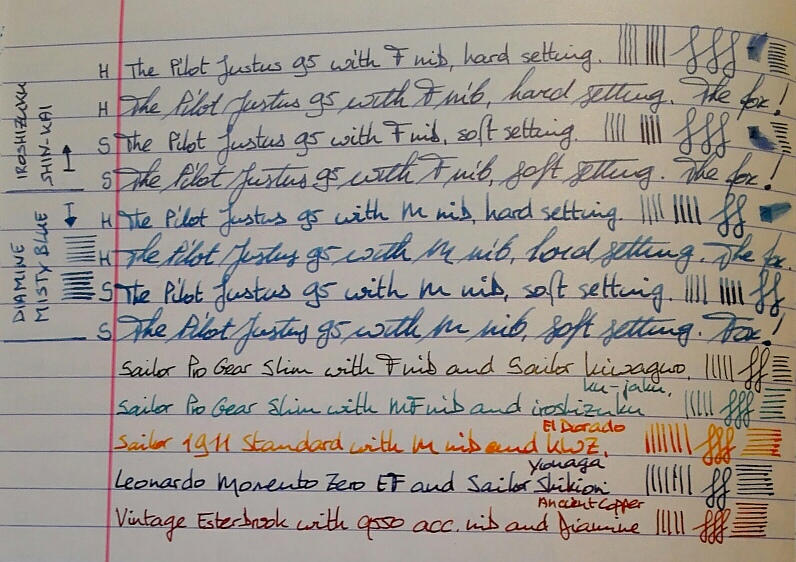 IROSHIZUKU
SHIN-KAI
H The Pilot Justus 95 with F nib, hard setting.
H The Pilot Justus 95 with F nib, hard setting. The fox!
S The Pilot Justus 95 with F nib, soft setting.
S The Pilot Justus 95 with F nib, soft setting. The fox!
DIAMINE
MISTY BLUE
H The Pilot Justus 95 with M nib, hard setting.
H The Pilot Justus 95 with M nib, hard setting. The fox.
S The Pilot Justus 95 with M nib, soft setting.
S The Pilot Justus 95 with M nib, soft setting. Fox!
Sailor Pro Gear Slim with F nib and Sailor kiwaguro.
ku-jaku.
Sailor Pro Gear Slim with MF nib and iroshizuku
El Dorado
Sailor 1911 Standard with M nib and KWZ.
Yonaga
Leonardo Momento Zero EF and Sailor Shikiori
Ancient Copper
Vintage Esterbrook with 9550 acc. nib and Diamine